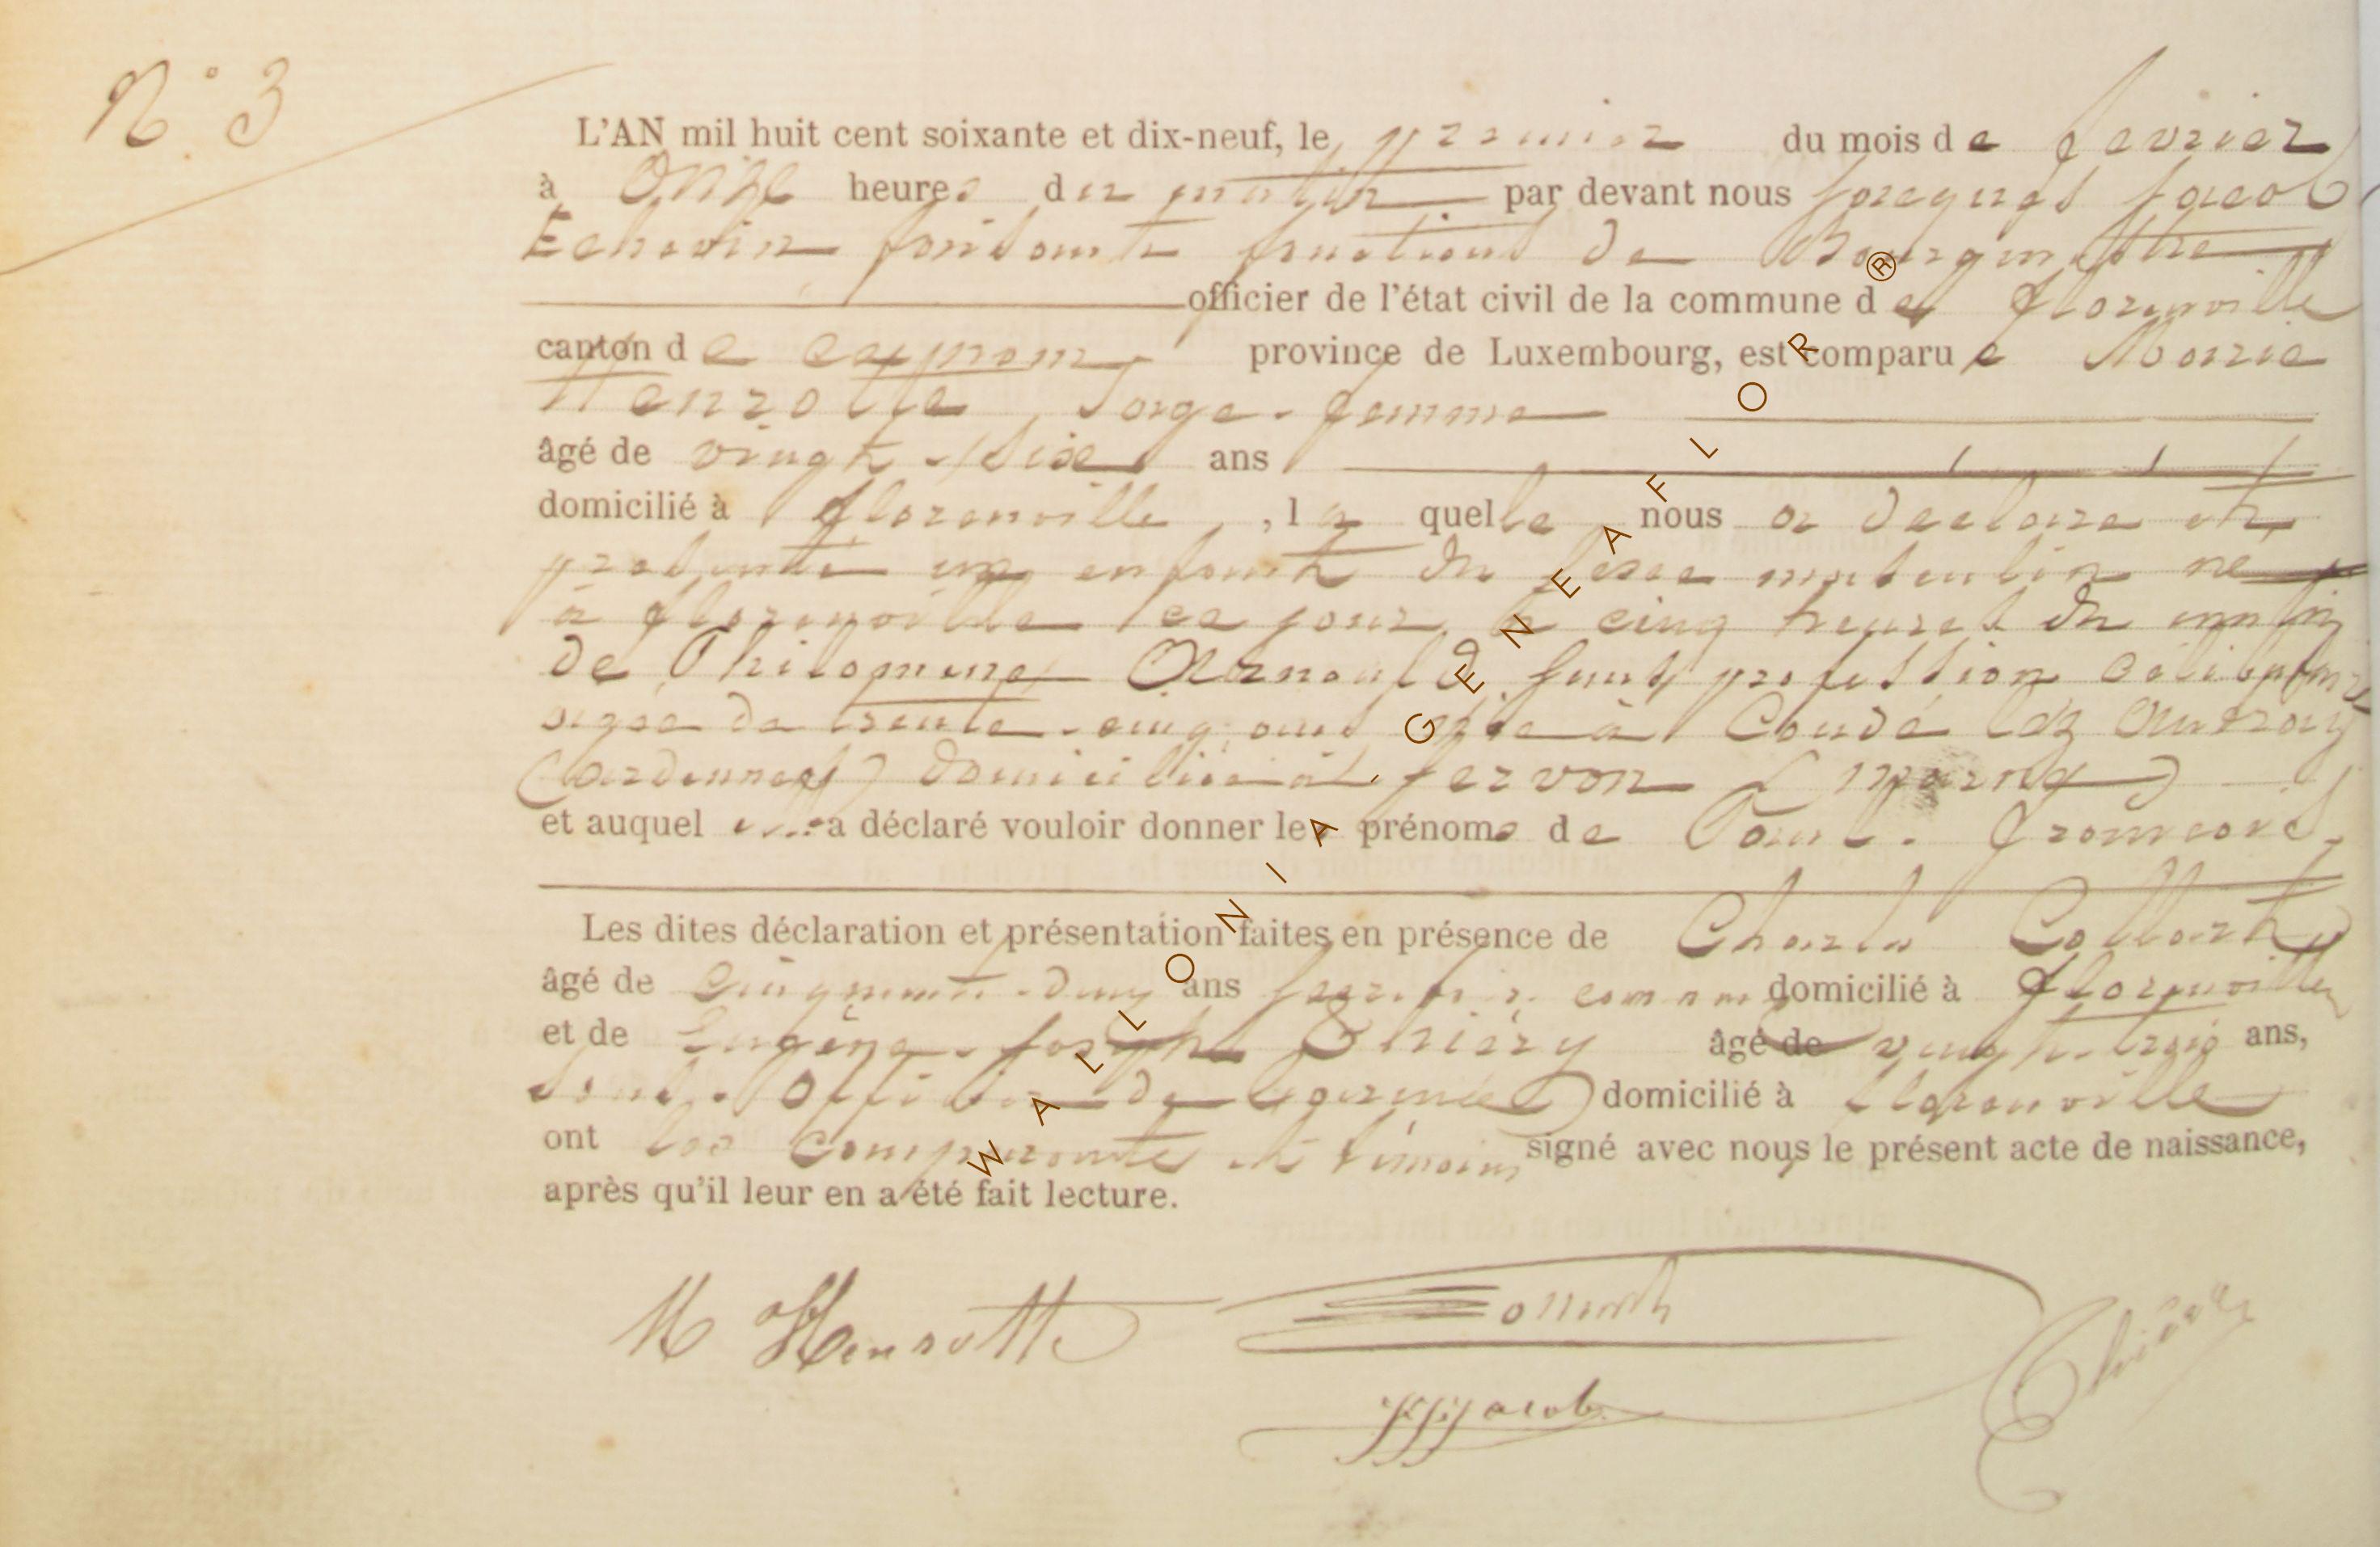 N° 3
L'AN mil huit cent soixante et dix-neuf, le premier du mois de fevrier
à Onze heures du matin par devant nous Jacques Jacob
Echevin faisant fonctions de Bourgmestre
officier de l'état civil de la commune de florenville
canton de province de Luxembourg, est comparue Marie
Henrotte, Sage-femme
âgé de vingt-six ans
domicilié à florenville, laquelle nous a declaré et
presenté un enfant du sexe masculin né
à florenville ce jour à cinq heures du matin
de Philomene Arnould, sans profession celibataire
agée de trente-cinq ans née à Condé lez Autray
(ardennes) domiciliée à Servon (marne)
et auquel elle a déclaré vouloir donner les prénoms de Paul-francois
Les dites déclaration et présentation faites en présence de Charles Collart
âgé de cinquante-deux ans domicilié à florenville
et de Eugène-Joseph Thiéry âgé de vingt-trois ans,
sous-Officier de l'armée domicilié à florenville
ont les comparante et témoins signé avec nous le présent acte de naissance,
après qu'il leur en a été fait lecture.
M Henrotte
JJJacob
Thiery
WALLONIA GENEAFLOR®